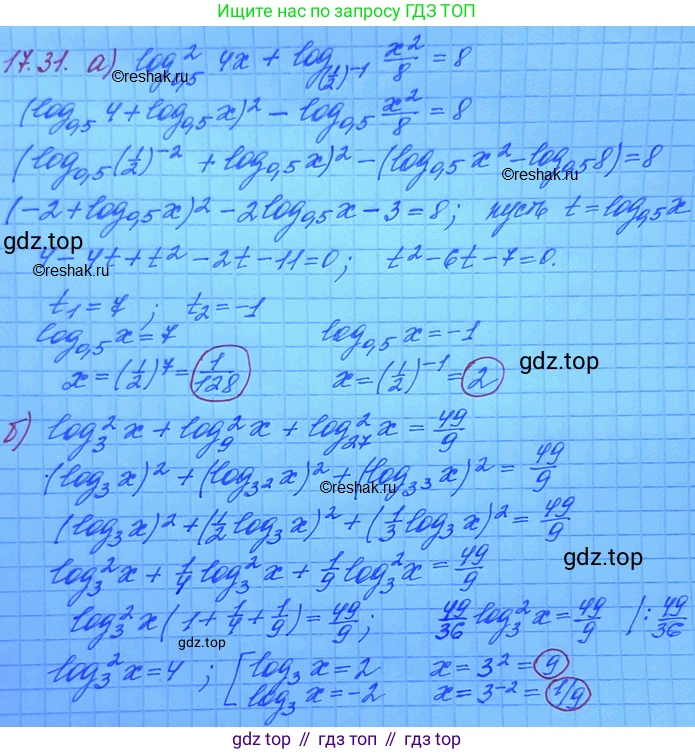 Ищите нас по запросу ГДЗ ТОП
17.31. а) log²₀,₅ 4x + log₍½₎⁻¹ x²/8 = 8
©reshak.ru
(log₀,₅ 4 + log₀,₅ x)² − log₀,₅ x²/8 = 8
©reshak.ru
(log₀,₅ (1/2)⁻² + log₀,₅ x)² − (log₀,₅ x² − log₀,₅ 8) = 8
(−2 + log₀,₅ x)² − 2log₀,₅ x − 3 = 8; пусть t = log₀,₅ x
gdz.top
4 − 4t + t² − 2t − 11 = 0; t² − 6t − 7 = 0.
©reshak.ru
t₁ = 7 ; t₂ = −1
log₀,₅ x = 7 log₀,₅ x = −1
gdz.top
x = (1/2)⁷ = 1/128 x = (1/2)⁻¹ = 2
б) log₃² x + log₉² x + log²₂₇ x = 49/9
(log₃ x)² + (log₃² x)² + (log₃³ x)² = 49/9
©reshak.ru
(log₃ x)² + (1/2 log₃ x)² + (1/3 log₃ x)² = 49/9
gdz.top
log₃² x + 1/4 log₃² x + 1/9 log₃² x = 49/9
log₃² x (1 + 1/4 + 1/9) = 49/9; 49/36 log₃² x = 49/9 /: 49/36
gdz.top
log₃² x = 4 ; [ log₃ x = 2 x = 3² = 9
log₃ x = −2 x = 3⁻² = 1/9
gdz.top // гдз.топ // gdz.top